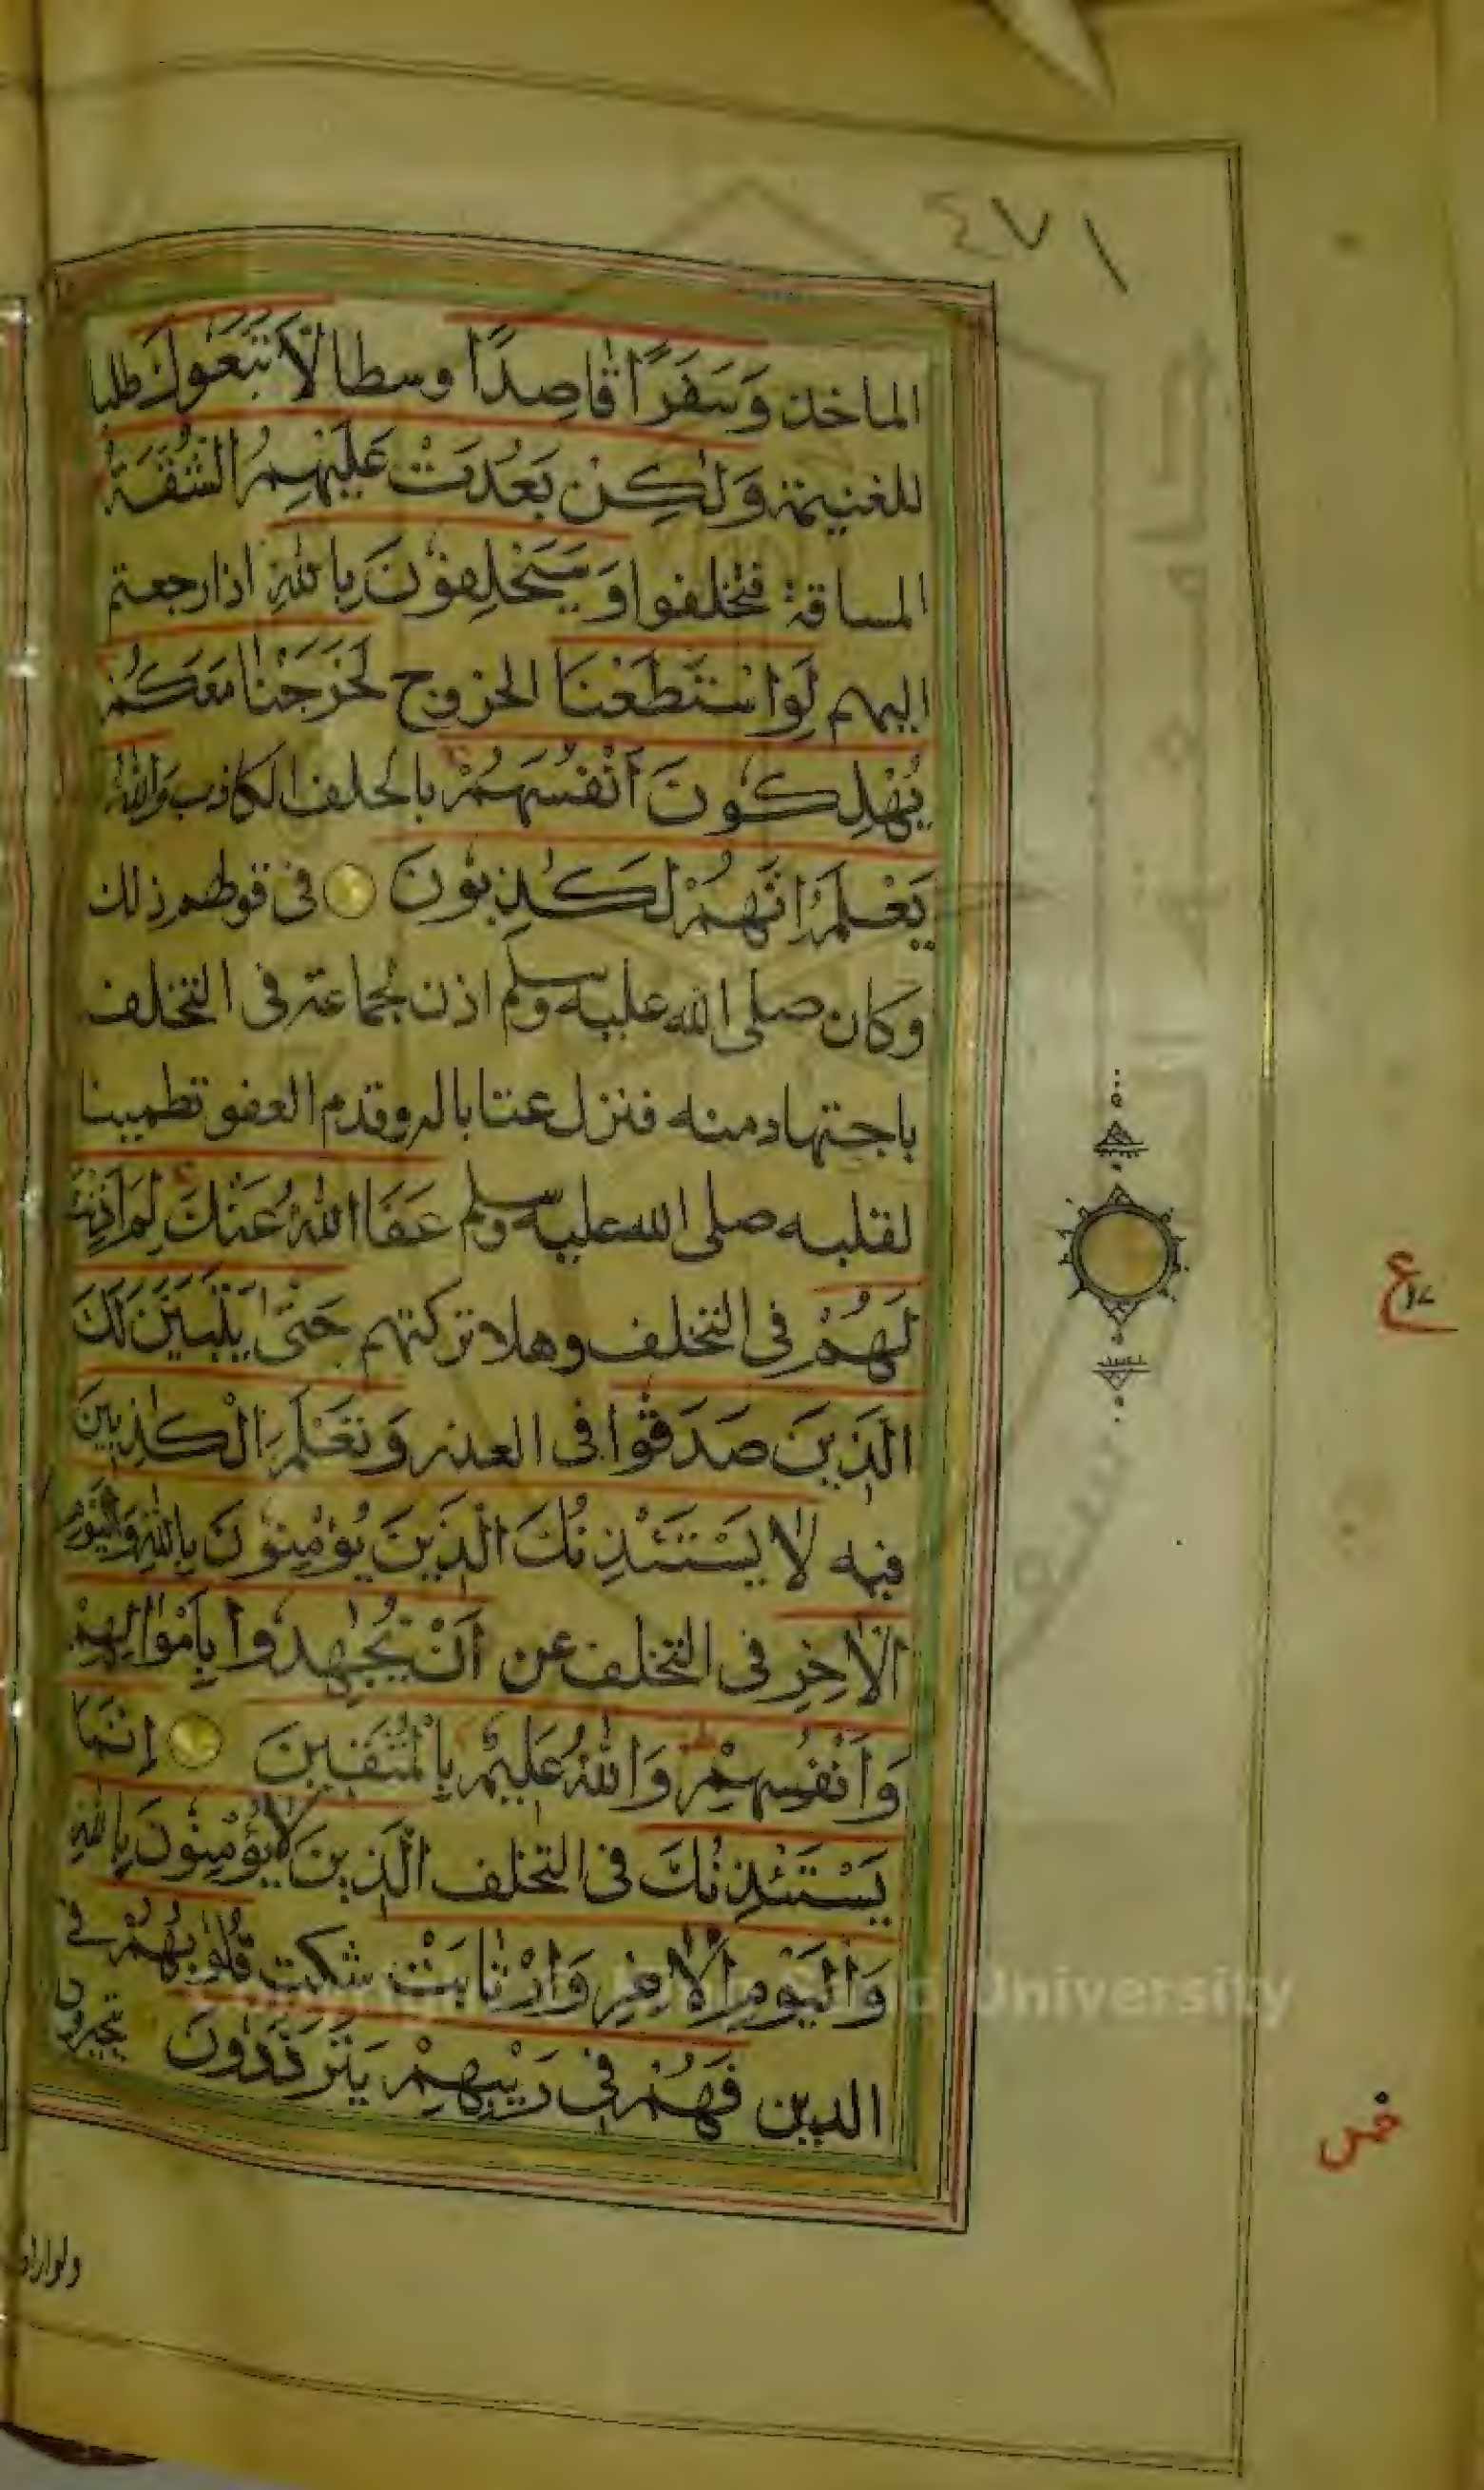 ٤٧١
الماخذ وَسَفَرًا قَاصِدًا وسطا لَّاتَّبَعُوكَ طلبا
للغنيمة وَلٰكِنْ بَعُدَتْ عَلَيْهِمُ الشُّقَّةُ
المسافة فتخلفوا وَسَيَحْلِفُوْنَ بِاللّٰهِ اذا رجعتم
اليهم لَوِاسْتَطَعْنَا الخروج لَخَرَجْنَا مَعَكُمْ
يُهْلِكُوْنَ اَنْفُسَهُمْ بالحلف الكاذب وَاللّٰهُ
يَعْلَمُ اِنَّهُمْ لَكٰذِبُوْنَ في قولهم ذلك
وكان صلى الله عليه وسلم اذن لجماعة في التخلف
باجتهاد منه فنزل عتابا له وقدم العفو تطمينا
لقلبه صلى الله عليه وسلم عَفَا اللّٰهُ عَنْكَ لِمَ اَذِنْتَ
لَهُمْ في التخلف وهلا تركتهم حَتّٰى يَتَبَيَّنَ لَكَ
الَّذِيْنَ صَدَقُوْا في العذر وَتَعْلَمَ الْكٰذِبِيْنَ
فيه لَا يَسْتَئْذِنُكَ الَّذِيْنَ يُؤْمِنُوْنَ بِاللّٰهِ وَالْيَوْمِ
الْاٰخِرِ في التخلف عن اَنْ يُّجٰهِدُوْا بِاَمْوَالِهِمْ
وَاَنْفُسِهِمْ وَاللّٰهُ عَلِيْمٌ بِالْمُتَّقِيْنَ اِنَّمَا
يَسْتَئْذِنُكَ في التخلف الَّذِيْنَ لَا يُؤْمِنُوْنَ بِاللّٰهِ
وَالْيَوْمِ الْاٰخِرِ وَارْتَابَتْ شكت قُلُوْبُهُمْ في
الدين فَهُمْ فِيْ رَيْبِهِمْ يَتَرَدَّدُوْنَ يتحيرون
ولو ارادوا
ع
خمس
University